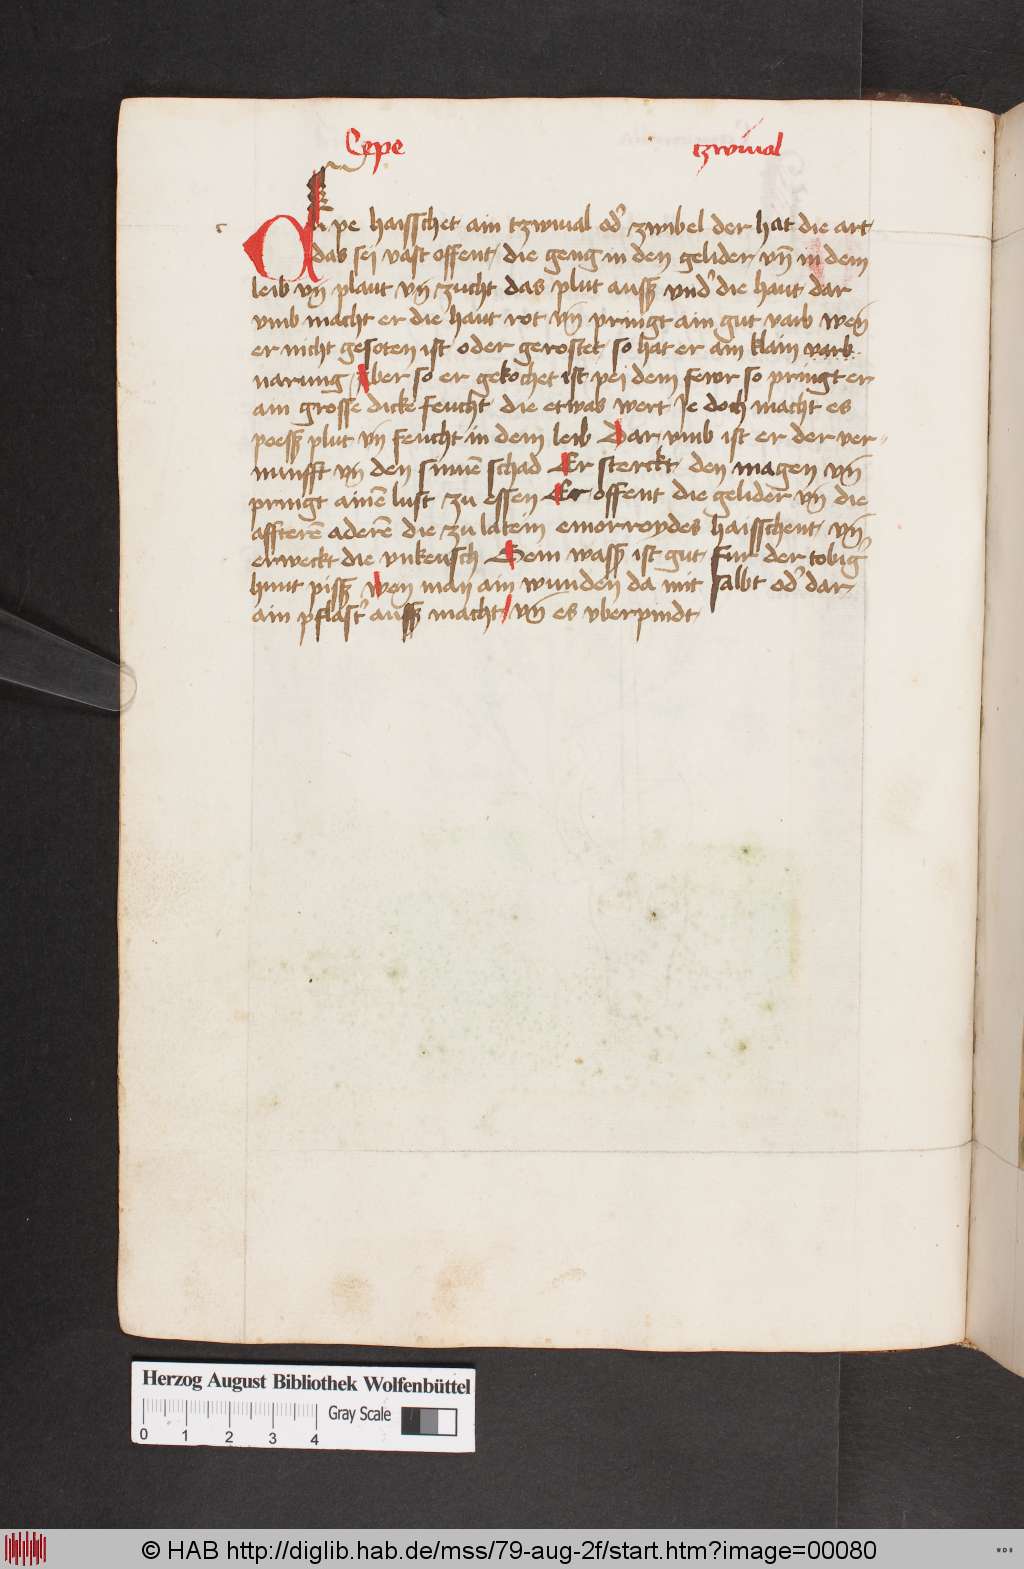 Cepe tzwiual
c
Cepe haisschet ain tzwiual od' zwibel der hat die art
das sei vast offent die geng in den gelider vn̄ in dem
leib vn̄ plaut vn̄ zucht das plut aussz vnd' die haut dar
vmb macht er die haut rot vn̄ pringt ain gut varb wen̄
er nicht gesoten ist oder gerostet so hat er ain klain varb
narung Aber so er gekochet ist pei dem fewr so pringt er
ain grosse dicke feucht die etwas wert Je doch macht es
poessz plut vn̄ feucht in dem leib Dar vmb ist er der ver
nunfft vn̄ den sinnē schad Er sterckt den magen vn̄
pringt ainē lust zu essen Er offent die gelider vn̄ die
affterē aderē die zu latein emorroydes haisschent vn̄
erweckt die vnkeusch Sein wassz ist gut fur der tobig'
hunt pissz wen man ain wunden da mit salbt od' dar
ain pflast' aussz macht / vn̄ es vberpindt
Herzog August Bibliothek Wolfenbüttel
Gray Scale
0 1 2 3 4
© HAB http://diglib.hab.de/mss/79-aug-2f/start.htm?image=00080